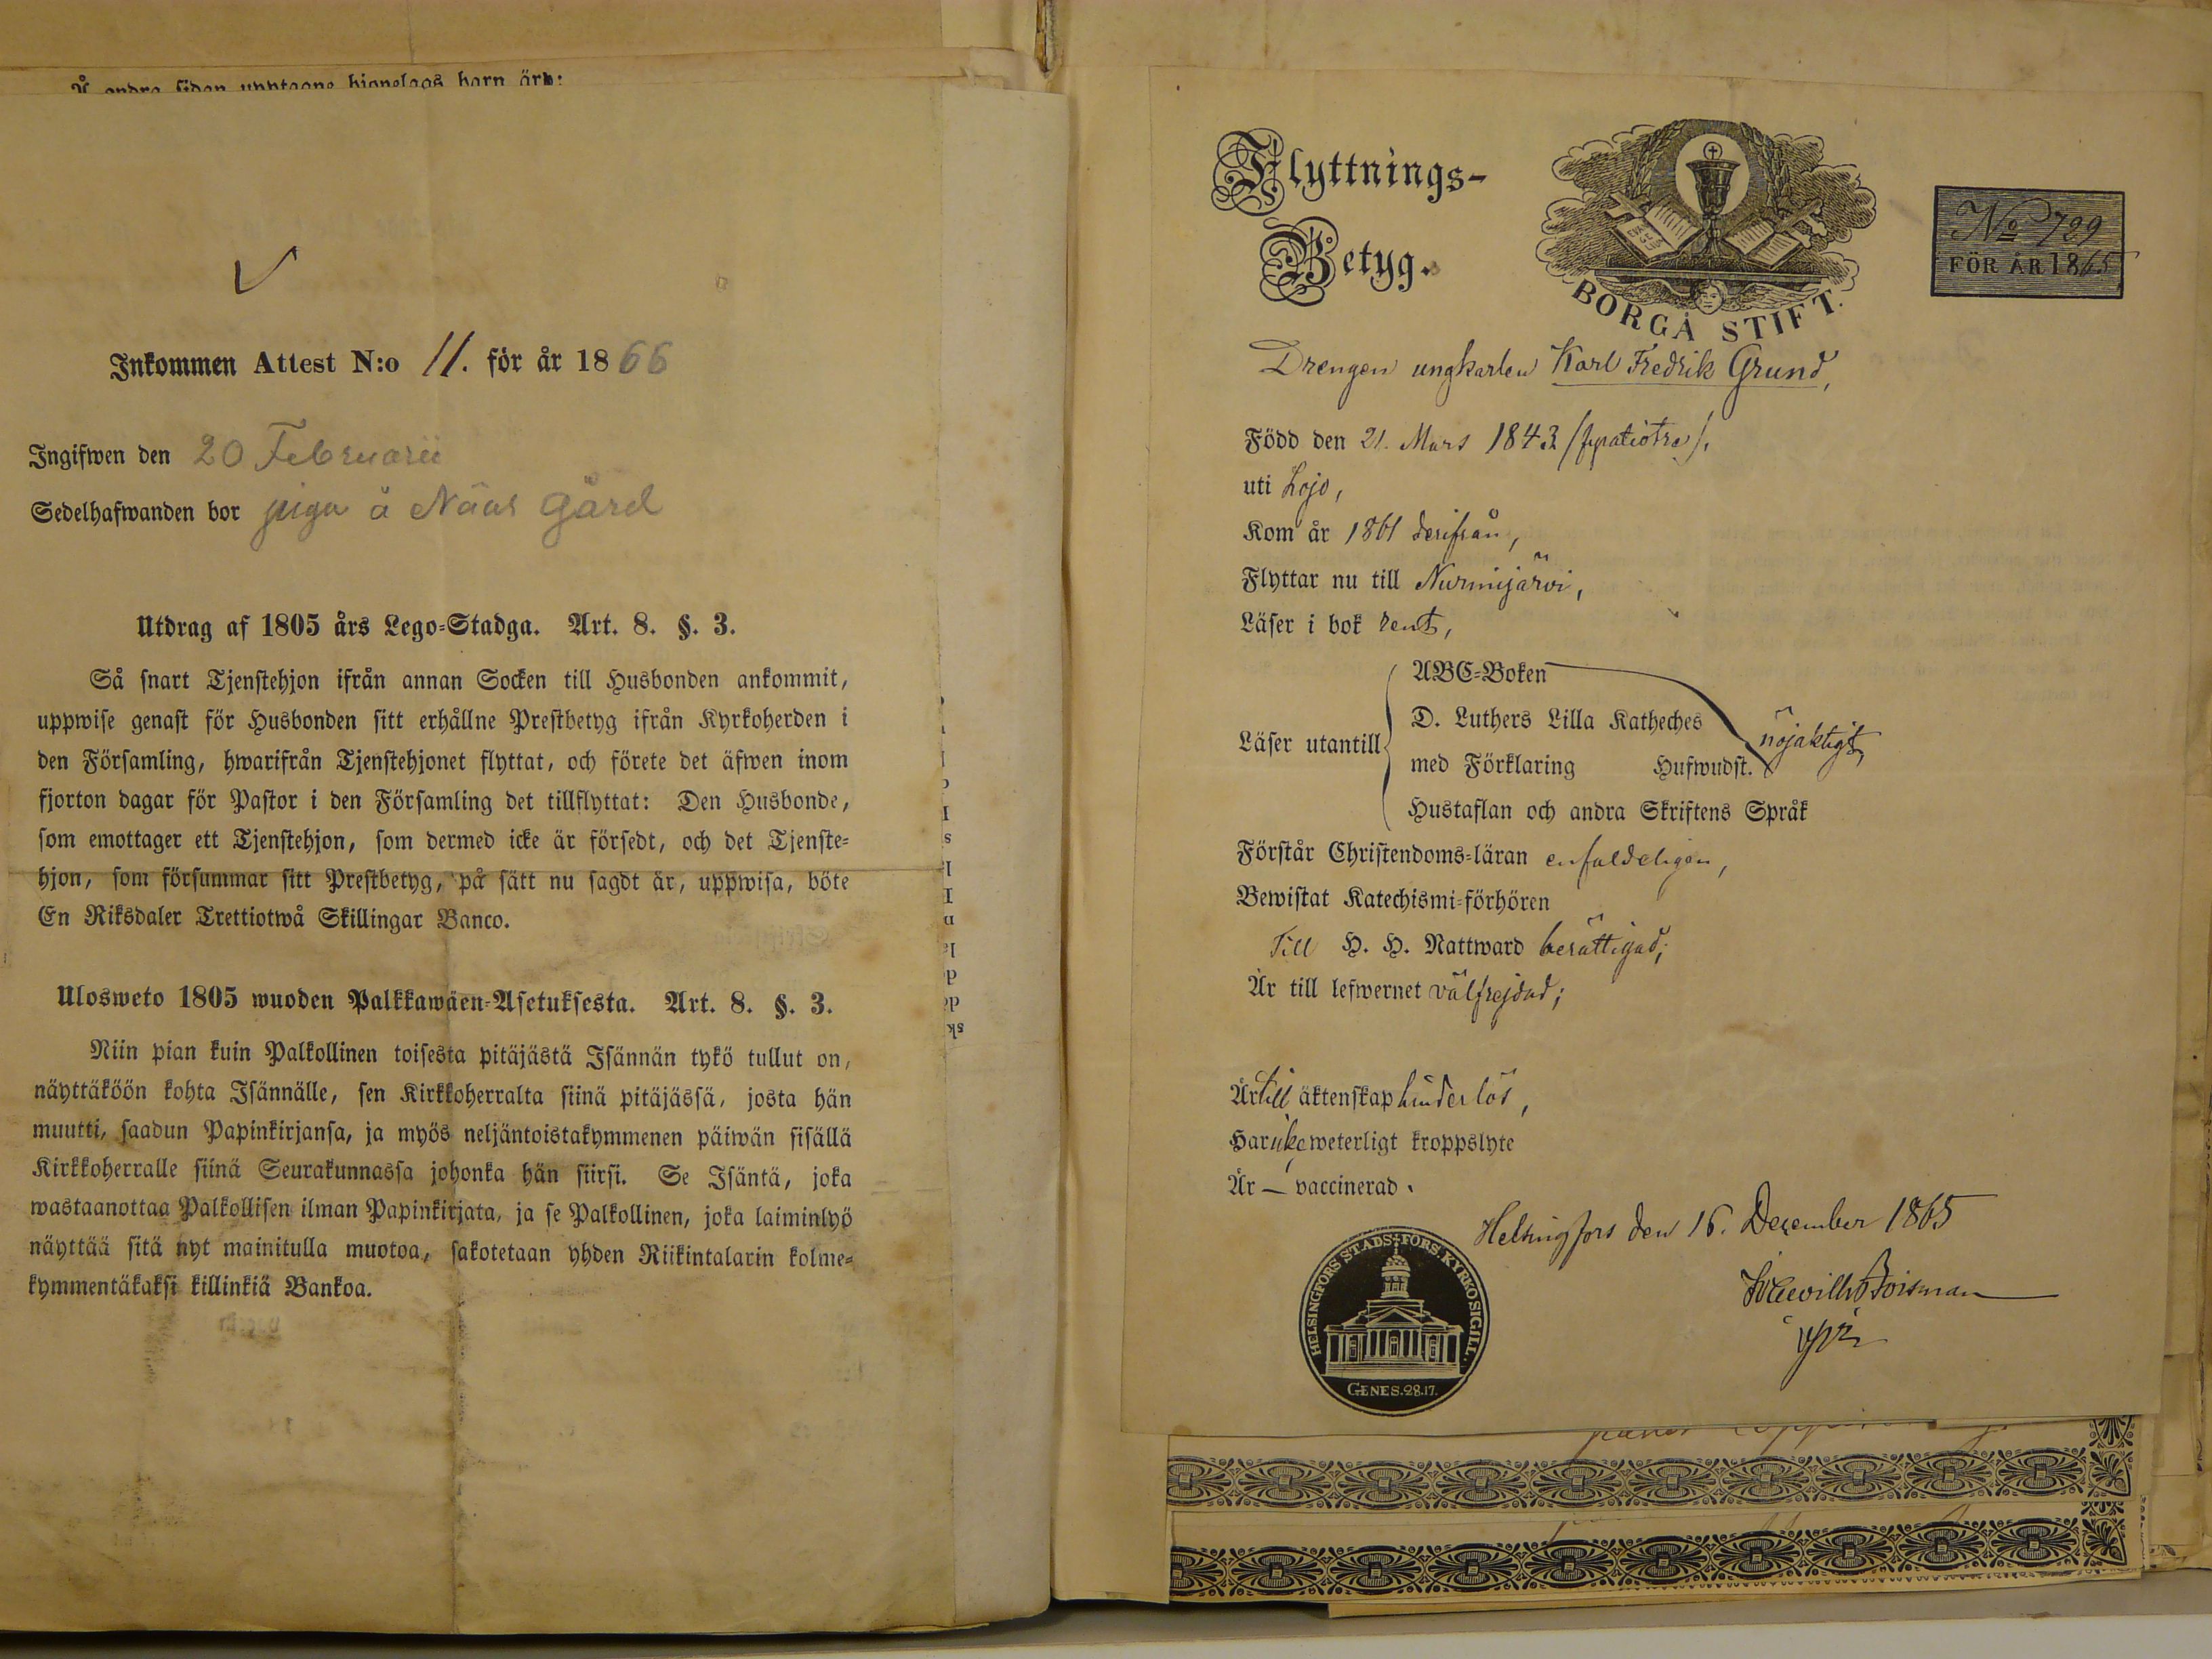 Å andra sidan upptagne hjonelags barn äro:
Inkommen Attest N:o 11. för år 1866
Ingifwen den 20 Februarii
Sedelhafwanden bor piga å Näas Gård
Utdrag af 1805 års Lego-Stadga. Art. 8. §. 3.
Så snart Tjenstehjon ifrån annan Socken till Husbonden ankommit,
uppwise genast för Husbonden sitt erhållne Prestbetyg ifrån Kyrkoherden i
den Församling, hwarifrån Tjenstehjonet flyttat, och förete det äfwen inom
fjorton dagar för Pastor i den Församling det tillflyttat: Den Husbonde,
som emottager ett Tjenstehjon, som dermed icke är försedt, och det Tjenste-
hjon, som försummar sitt Prestbetyg, på sätt nu sagdt är, uppwisa, böte
En Riksdaler Trettiotwå Skillingar Banco.
Ulosweto 1805 wuoden Palkkawäen-Asetuksesta. Art. 8. §. 3.
Niin pian kuin Palkollinen toisesta pitäjästä Isännän tykö tullut on,
näyttäköön kohta Isännälle, sen Kirkkoherralta siinä pitäjässä, josta hän
muutti, saadun Papinkirjansa, ja myös neljäntoistakymmenen päiwän sisällä
Kirkkoherralle siinä Seurakunnassa johonka hän siirsi. Se Isäntä, joka
wastaanottaa Palkollisen ilman Papinkirjata, ja se Palkollinen, joka laiminlyö
näyttää sitä nyt mainitulla muotoa, sakotetaan yhden Riikintalarin kolme-
kymmentäkaksi killinkiä Bankoa.
Flyttnings-
Betyg.
EVANGELIUM
BORGÅ STIFT.
No 729
FÖR ÅR 1865
Drengen ungkarlen Karl Fredrik Grund,
Född den 21. Mars 1843 /fyratiotre/,
uti Lojo,
Kom år 1861 derifrån,
Flyttar nu till Nurmijärvi,
Läser i bok rent,
ABC-Boken
D. Luthers Lilla Katheches
Läser utantill
nöjaktigt,
med Förklaring Hufwudst.
Hustaflan och andra Skriftens Språk
Förstår Christendoms-läran enfaldeligen,
Bewistat Katechismi-förhören
Till H. H. Nattward berättigad;
Är till lefwernet välfrejdad;
Är till äktenskap hinderlös,
Har icke weterligt kroppslyte
Är — vaccinerad.
Helsingfors den 16. December 1865
Boisman
HELSINGFORS STADS FÖRS. KYRKO SIGILL.
GENES. 28.17.